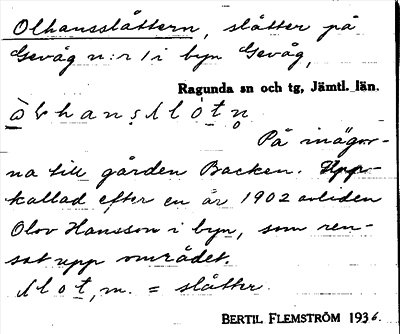 Olhansslåttern, slåtter på
Gevåg n:r 1 i byn Gevåg,
Ragunda sn och tg, Jämtl. län.
På inägor-
na till gården Backen. Upp-
kallad efter en år 1902 avliden
Olov Hansson i byn, som ren-
sat upp området.
m. = slåtter.
BERTIL FLEMSTRÖM 1936.